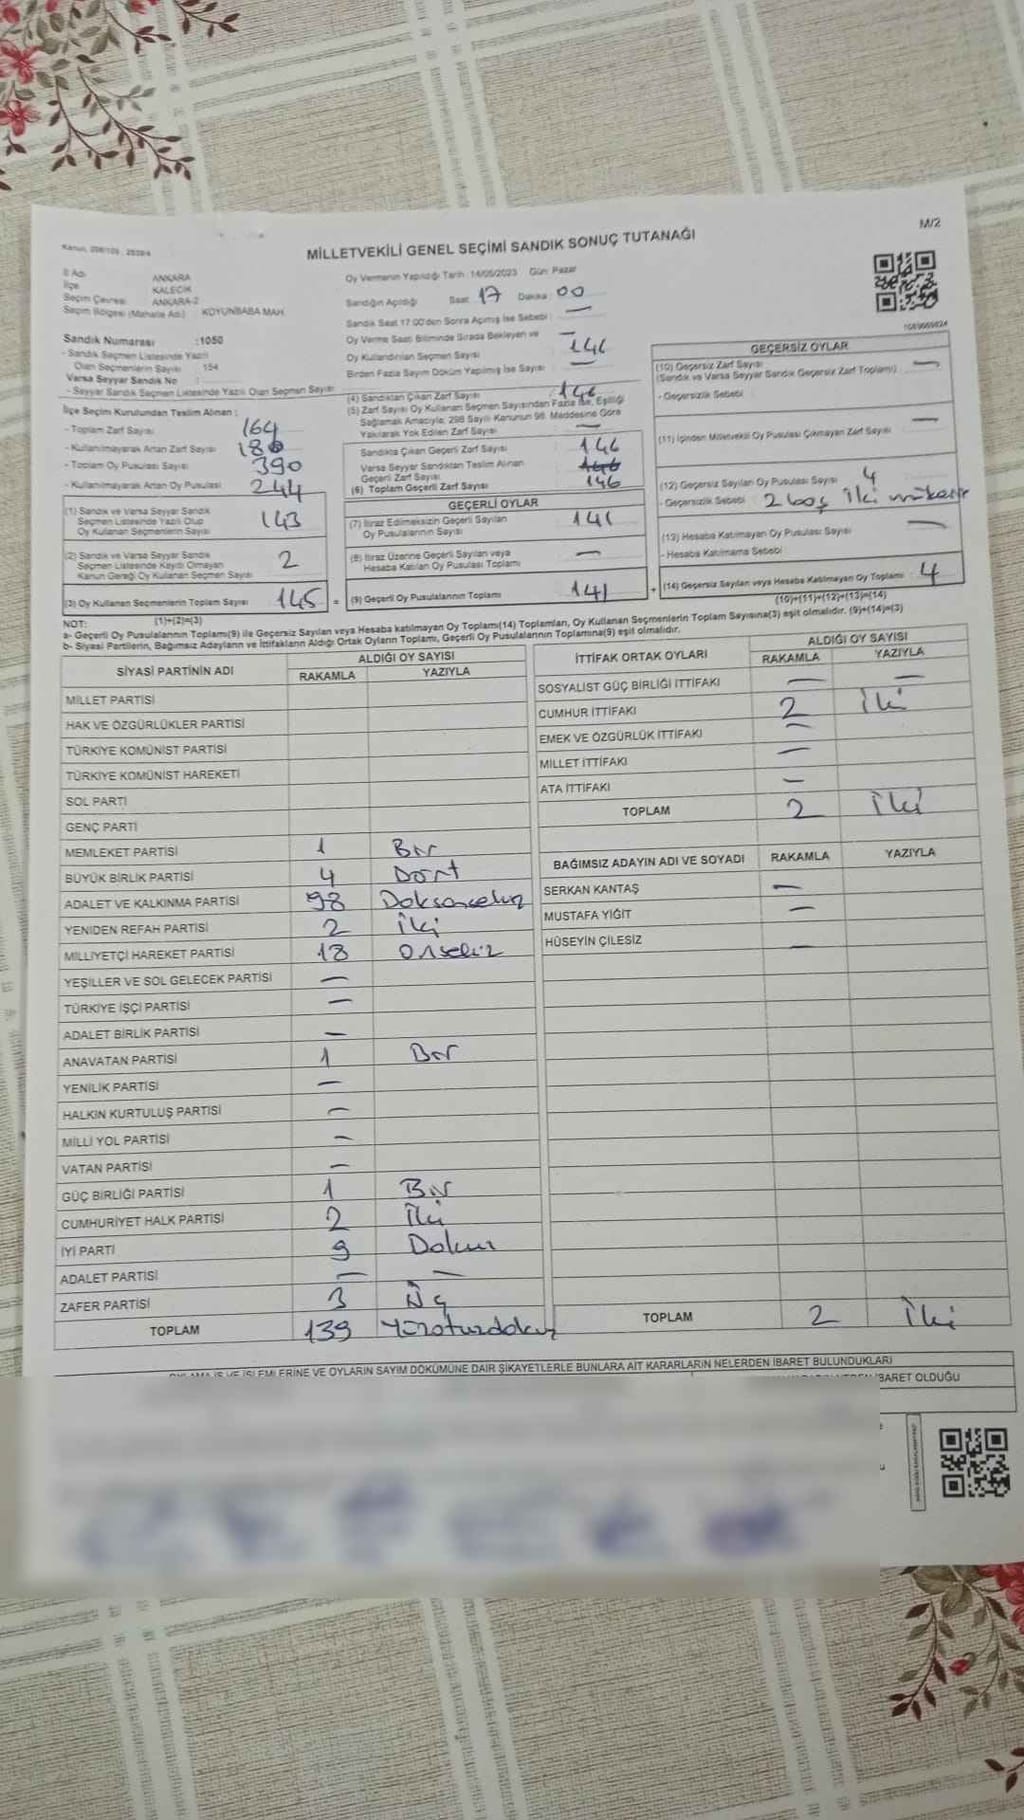 M/2
MİLLETVEKİLİ GENEL SEÇİMİ SANDIK SONUÇ TUTANAĞI
İl Adı ANKARA
İlçe KALECİK
Seçim Çevresi ANKARA-2
Seçim Bölgesi (Mahalle Adı) KOYUNBABA MAH.
Oy Vermenin Yapıldığı Tarih :14/05/2023 Gün: Pazar
Sandığın Açıldığı Saat 17 Dakika 00
Sandık Saat 17:00'den Sonra Açılmış İse Sebebi : —
Oy Verme Saati Bitiminde Sırada Bekleyen ve —
Oy Kullandırılan Seçmen Sayısı 146
Birden Fazla Sayım Döküm Yapılmış İse Sayısı : —
Sandık Numarası :1050
- Sandık Seçmen Listesinde Yazılı
Olan Seçmenlerin Sayısı 154
Varsa Seyyar Sandık No :
- Seyyar Sandık Seçmen Listesinde Yazılı Olan Seçmen Sayısı
İlçe Seçim Kurulundan Teslim Alınan :
- Toplam Zarf Sayısı 164
- Kullanılmayarak Artan Zarf Sayısı
- Toplam Oy Pusulası Sayısı 390
- Kullanılmayarak Artan Oy Pusulası 244
(1) Sandık ve Varsa Seyyar Sandık
Seçmen Listesinde Yazılı Olup
Oy Kullanan Seçmenlerin Sayısı 143
(2) Sandık ve Varsa Seyyar Sandık
Seçmen Listesinde Kaydı Olmayan
Kanun Gereği Oy Kullanan Seçmen Sayısı 2
(3) Oy Kullanan Seçmenlerin Toplam Sayısı 145
(1)+(2)=(3)
(4) Sandıktan Çıkan Zarf Sayısı 146
(5) Zarf Sayısı Oy Kullanan Seçmen Sayısından Fazla İse, Eşitliği
Sağlamak Amacıyla, 298 Sayılı Kanunun 98. Maddesine Göre
Yakılarak Yok Edilen Zarf Sayısı —
Sandıkta Çıkan Geçerli Zarf Sayısı 146
Varsa Seyyar Sandıktan Teslim Alınan
Geçerli Zarf Sayısı 146
(6) Toplam Geçerli Zarf Sayısı 146
GEÇERLİ OYLAR
(7) İtiraz Edilmeksizin Geçerli Sayılan
Oy Pusulalarının Sayısı 141
(8) İtiraz Üzerine Geçerli Sayılan veya
Hesaba Katılan Oy Pusulası Toplamı —
= (9) Geçerli Oy Pusulalarının Toplamı 141
GEÇERSİZ OYLAR
(10) Geçersiz Zarf Sayısı —
(Sandık ve Varsa Seyyar Sandık Geçersiz Zarf Toplamı)
- Geçersizlik Sebebi
(11) İçinden Milletvekili Oy Pusulası Çıkmayan Zarf Sayısı —
(12) Geçersiz Sayılan Oy Pusulası Sayısı 4
- Geçersizlik Sebebi 2 boş iki
(13) Hesaba Katılmayan Oy Pusulası Sayısı —
- Hesaba Katılmama Sebebi
+ (14) Geçersiz Sayılan veya Hesaba Katılmayan Oy Toplamı 4
(10)+(11)+(12)+(13)=(14)
NOT:
a- Geçerli Oy Pusulalarının Toplamı(9) ile Geçersiz Sayılan veya Hesaba katılmayan Oy Toplamı(14) Toplamları, Oy Kullanan Seçmenlerin Toplam Sayısına(3) eşit olmalıdır. (9)+(14)=(3)
b- Siyasi Partilerin, Bağımsız Adayların ve İttifakların Aldığı Ortak Oyların Toplamı, Geçerli Oy Pusulalarının Toplamına(9) eşit olmalıdır.
SİYASİ PARTİNİN ADI ALDIĞI OY SAYISI
RAKAMLA YAZIYLA
MİLLET PARTİSİ
HAK VE ÖZGÜRLÜKLER PARTİSİ
TÜRKİYE KOMÜNİST PARTİSİ
TÜRKİYE KOMÜNİST HAREKETİ
SOL PARTİ
GENÇ PARTİ
MEMLEKET PARTİSİ 1 Bir
BÜYÜK BİRLİK PARTİSİ 4 Dört
ADALET VE KALKINMA PARTİSİ 98 Doksansekiz
YENİDEN REFAH PARTİSİ 2 İki
MİLLİYETÇİ HAREKET PARTİSİ 18 Onsekiz
YEŞİLLER VE SOL GELECEK PARTİSİ —
TÜRKİYE İŞÇİ PARTİSİ —
ADALET BİRLİK PARTİSİ —
ANAVATAN PARTİSİ 1 Bir
YENİLİK PARTİSİ —
HALKIN KURTULUŞ PARTİSİ —
MİLLİ YOL PARTİSİ —
VATAN PARTİSİ —
GÜÇ BİRLİĞİ PARTİSİ 1 Bir
CUMHURİYET HALK PARTİSİ 2 İki
İYİ PARTİ 9 Dokuz
ADALET PARTİSİ — —
ZAFER PARTİSİ 3 Üç
TOPLAM 139 Yüzotuzdokuz
İTTİFAK ORTAK OYLARI ALDIĞI OY SAYISI
RAKAMLA YAZIYLA
SOSYALIST GÜÇ BİRLİĞİ İTTİFAKI — —
CUMHUR İTTİFAKI 2 İki
EMEK VE ÖZGÜRLÜK İTTİFAKI —
MİLLET İTTİFAKI —
ATA İTTİFAKI —
TOPLAM 2 İki
BAĞIMSIZ ADAYIN ADI VE SOYADI RAKAMLA YAZIYLA
SERKAN KANTAŞ —
MUSTAFA YİĞİT —
HÜSEYİN ÇİLESİZ —
TOPLAM 2 İki
VE OYLARIN SAYIM DÖKÜMÜNE DAİR ŞİKAYETLERLE BUNLARA AİT KARARLARIN NELERDEN İBARET BULUNDUKLARI
İBARET OLDUĞU